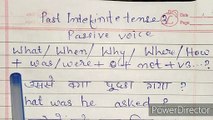 Past Indefinite tense
Passive voice
What/When/Why/Where/How
+ was/were + + not + v3.
उससे क्या पूछा गया?
hat was he asked?
PowerDirector